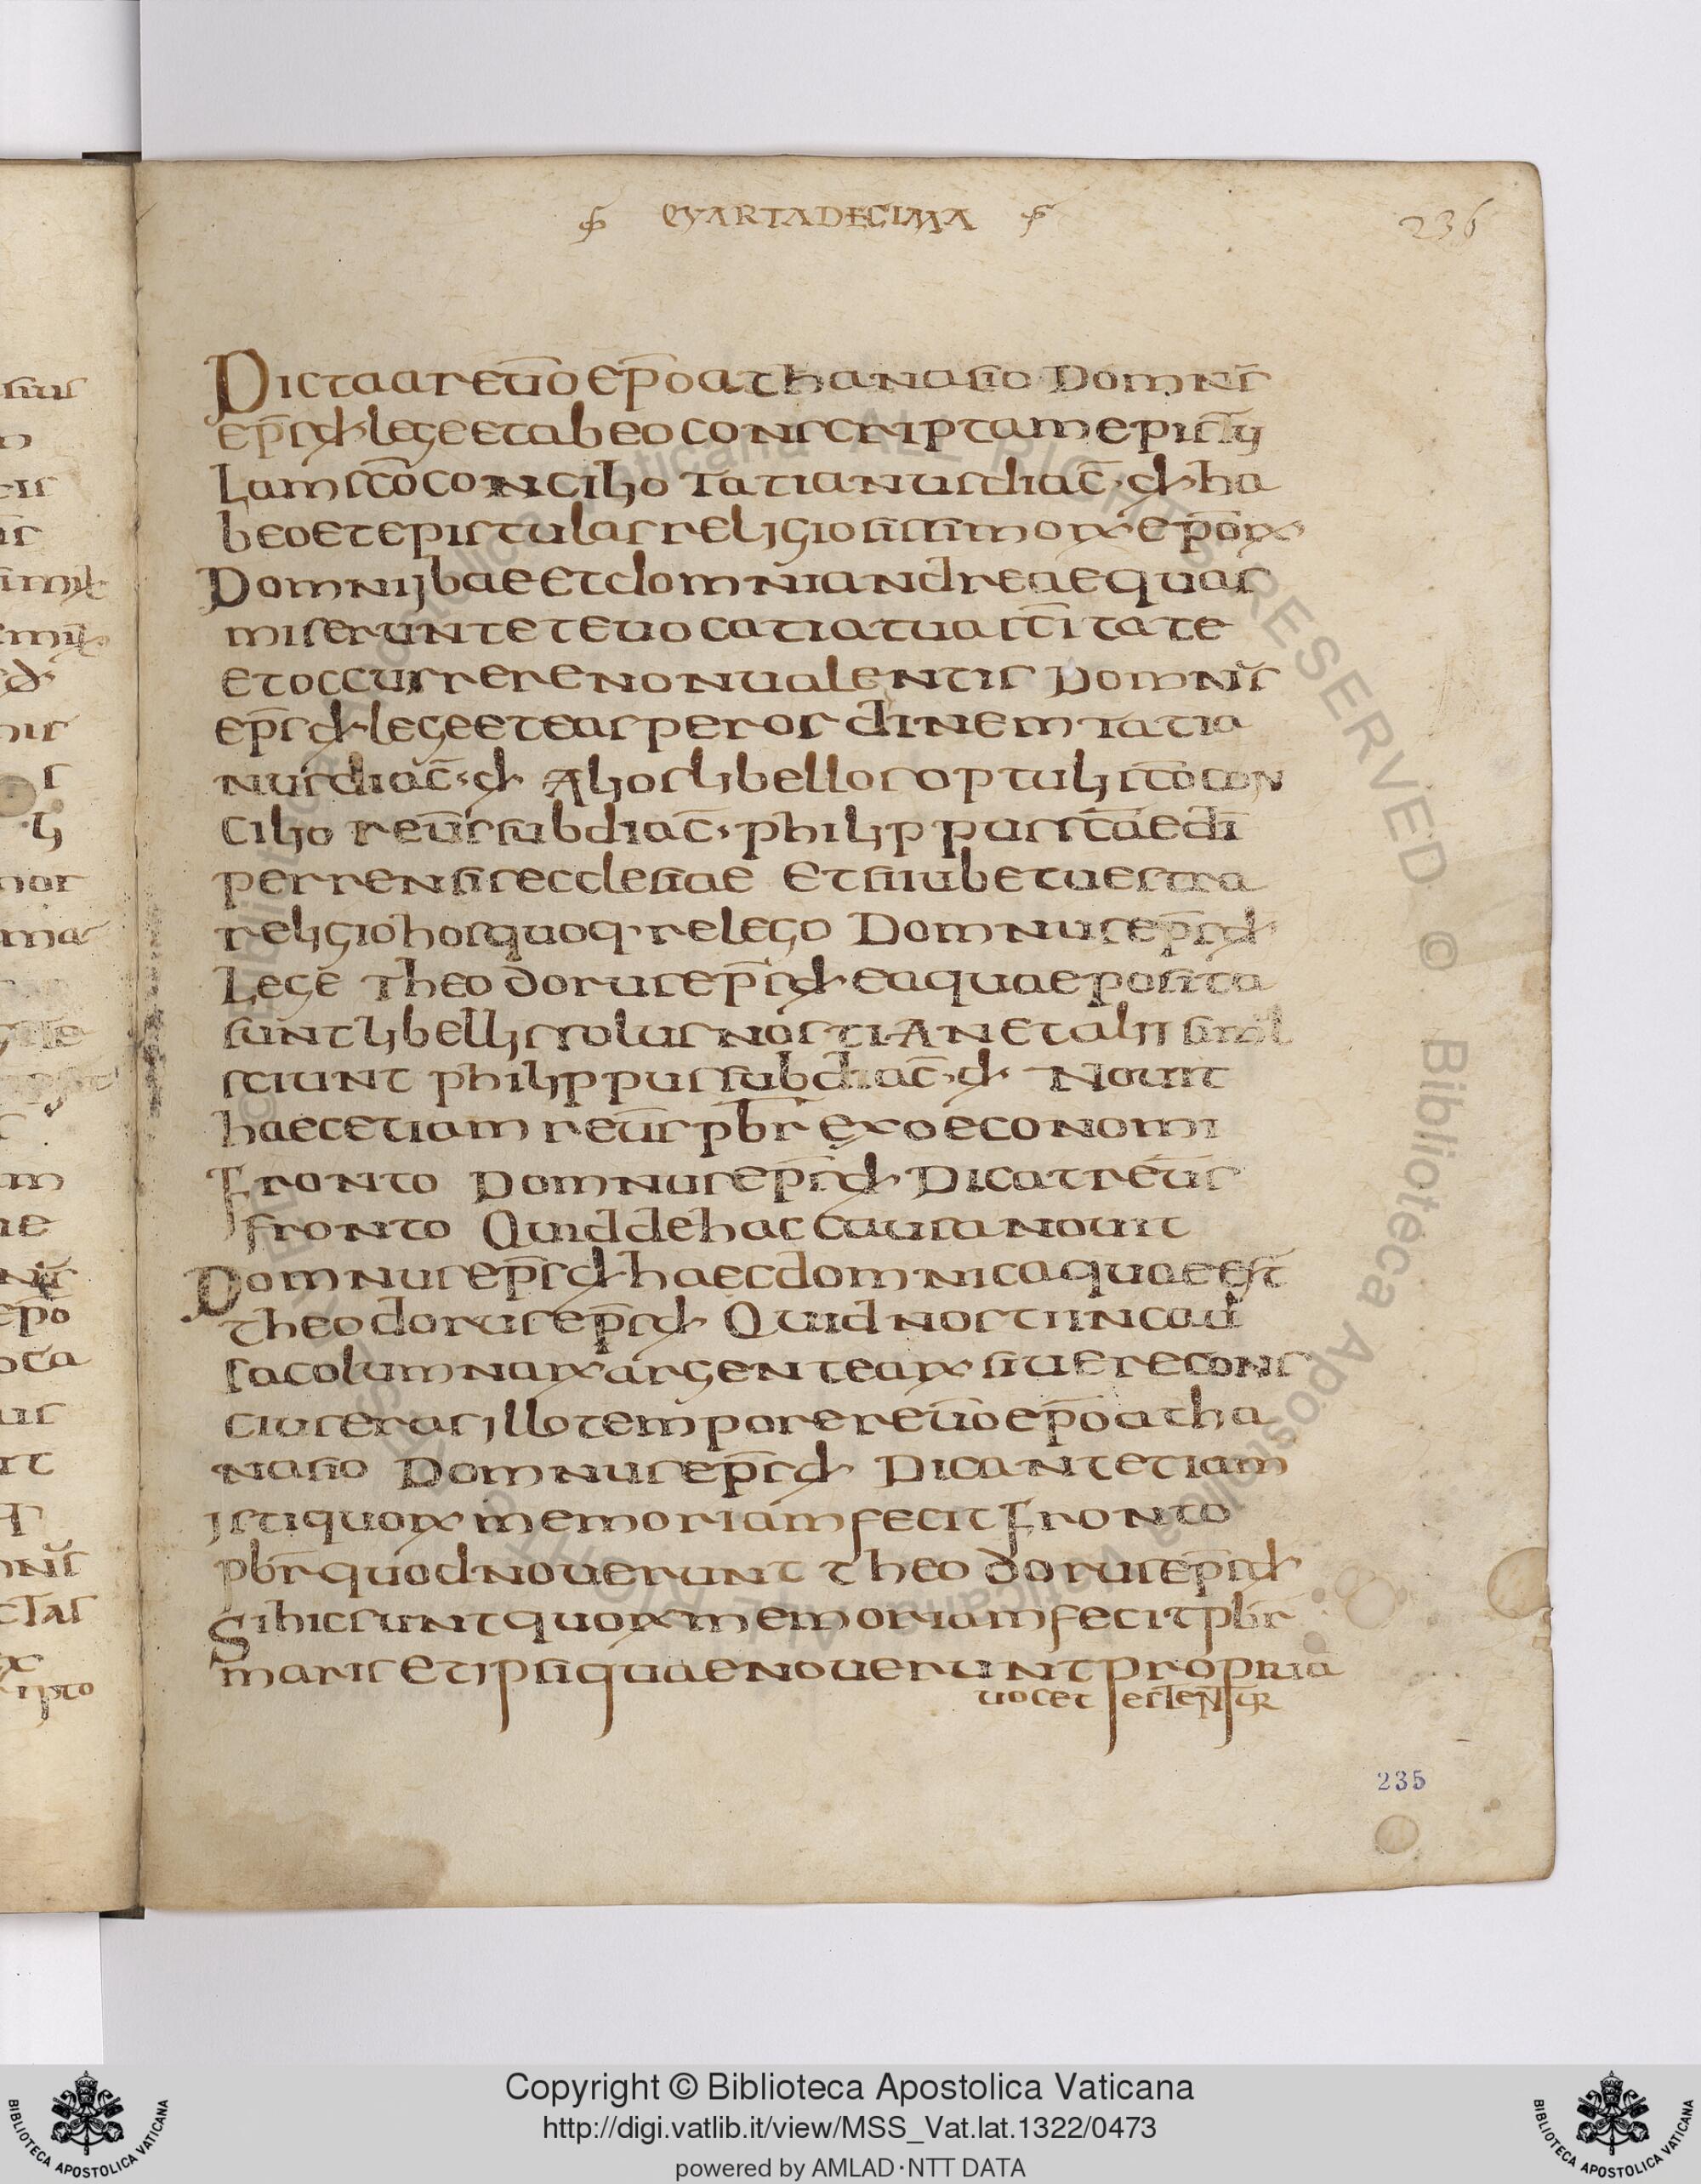 QUARTADECIMA
236
Dicta a reūo epō athanasio Domnŭs
ep̄s d̄ lege et ab eo conscriptam epistu
lam sc̄o concilio Tatianus diac̄ · d̄ ha
beo et epistulas religiosissimorum ep̄orum
Domni ibae et domni andreae quas
miserunt et euocati a tua sc̄itate
et occurrere non ualentis Domnŭs
ep̄s d̄ lege et eas per ordinem Tatia
nus diac̄ · d̄ Alios libellos optuli sc̄o con
cilio reūs subdiac̄ · philippus sc̄ae dī
perrensis ecclesiae Et si iubet uestra
religio hos quoq· relego Domnus ep̄s d̄
Lege Theodorus ep̄s d̄ ea quae posita
sunt libellis solus nosti· An et alii simul
sciunt philippus subdiac̄ · d̄ Nouit
haec etiam reūs pb̄r exoeconomi
Fronto Domnus ep̄s d̄ Dicat reūs
fronto Quid de hac causa nouit
Domnus ep̄s d̄ haec domnica quae est
Theodorus ep̄s d̄ Quid nosti in cau
sa columnarum argentearum si uere cons
cius eras illo tempore reūo ep̄o atha
nasio Domnus ep̄s d̄ Dicant etiam
isti quorum memoriam fecit Fronto
pb̄r quod nouerunt Theodorus ep̄s d̄
Si hic sunt quorum memoriam fecit pb̄r
maris et ipsi quae nouerunt propria
uocet
235
Copyright © Biblioteca Apostolica Vaticana
http://digi.vatlib.it/view/MSS_Vat.lat.1322/0473
powered by AMLAD·NTT DATA
BIBLIOTECA APOSTOLICA VATICANA
BIBLIOTECA APOSTOLICA VATICANA